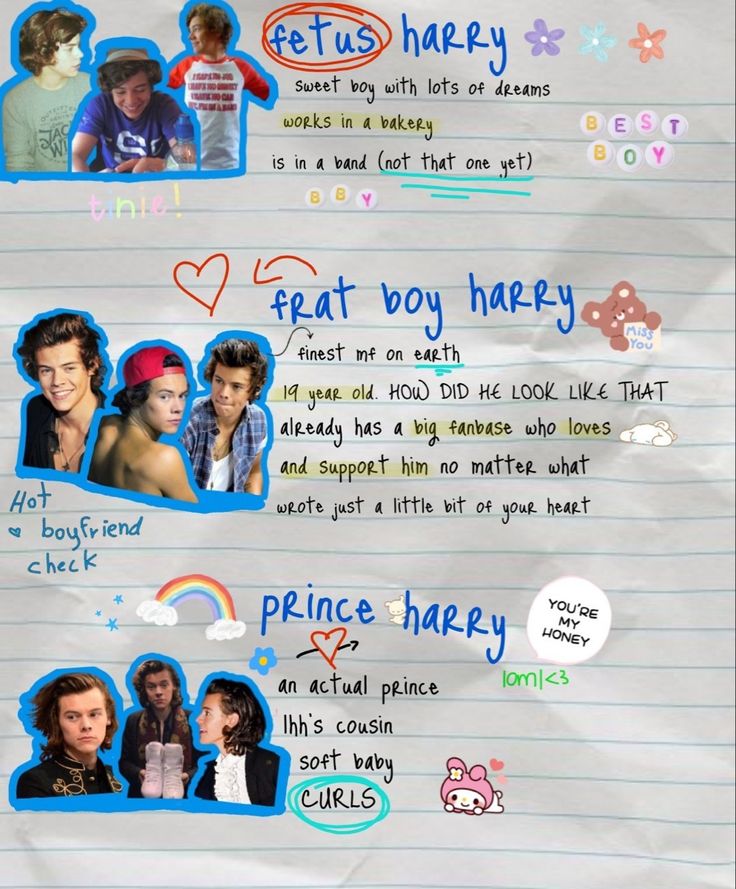 fetus harry
sweet boy with lots of dreams
works in a bakery
is in a band (not that one yet)
BEST
BOY
BBY
tinie!
frat boy harry
MISS
YOU
finest mf on earth
19 year old. HOW DID HE LOOK LIKE THAT
already has a big fanbase who loves
and support him no matter what
wrote just a little bit of your heart
Hot
boyfriend
check
prince harry
YOU'RE
MY
HONEY
lom|<3
an actual prince
lhh's cousin
soft baby
CURLS